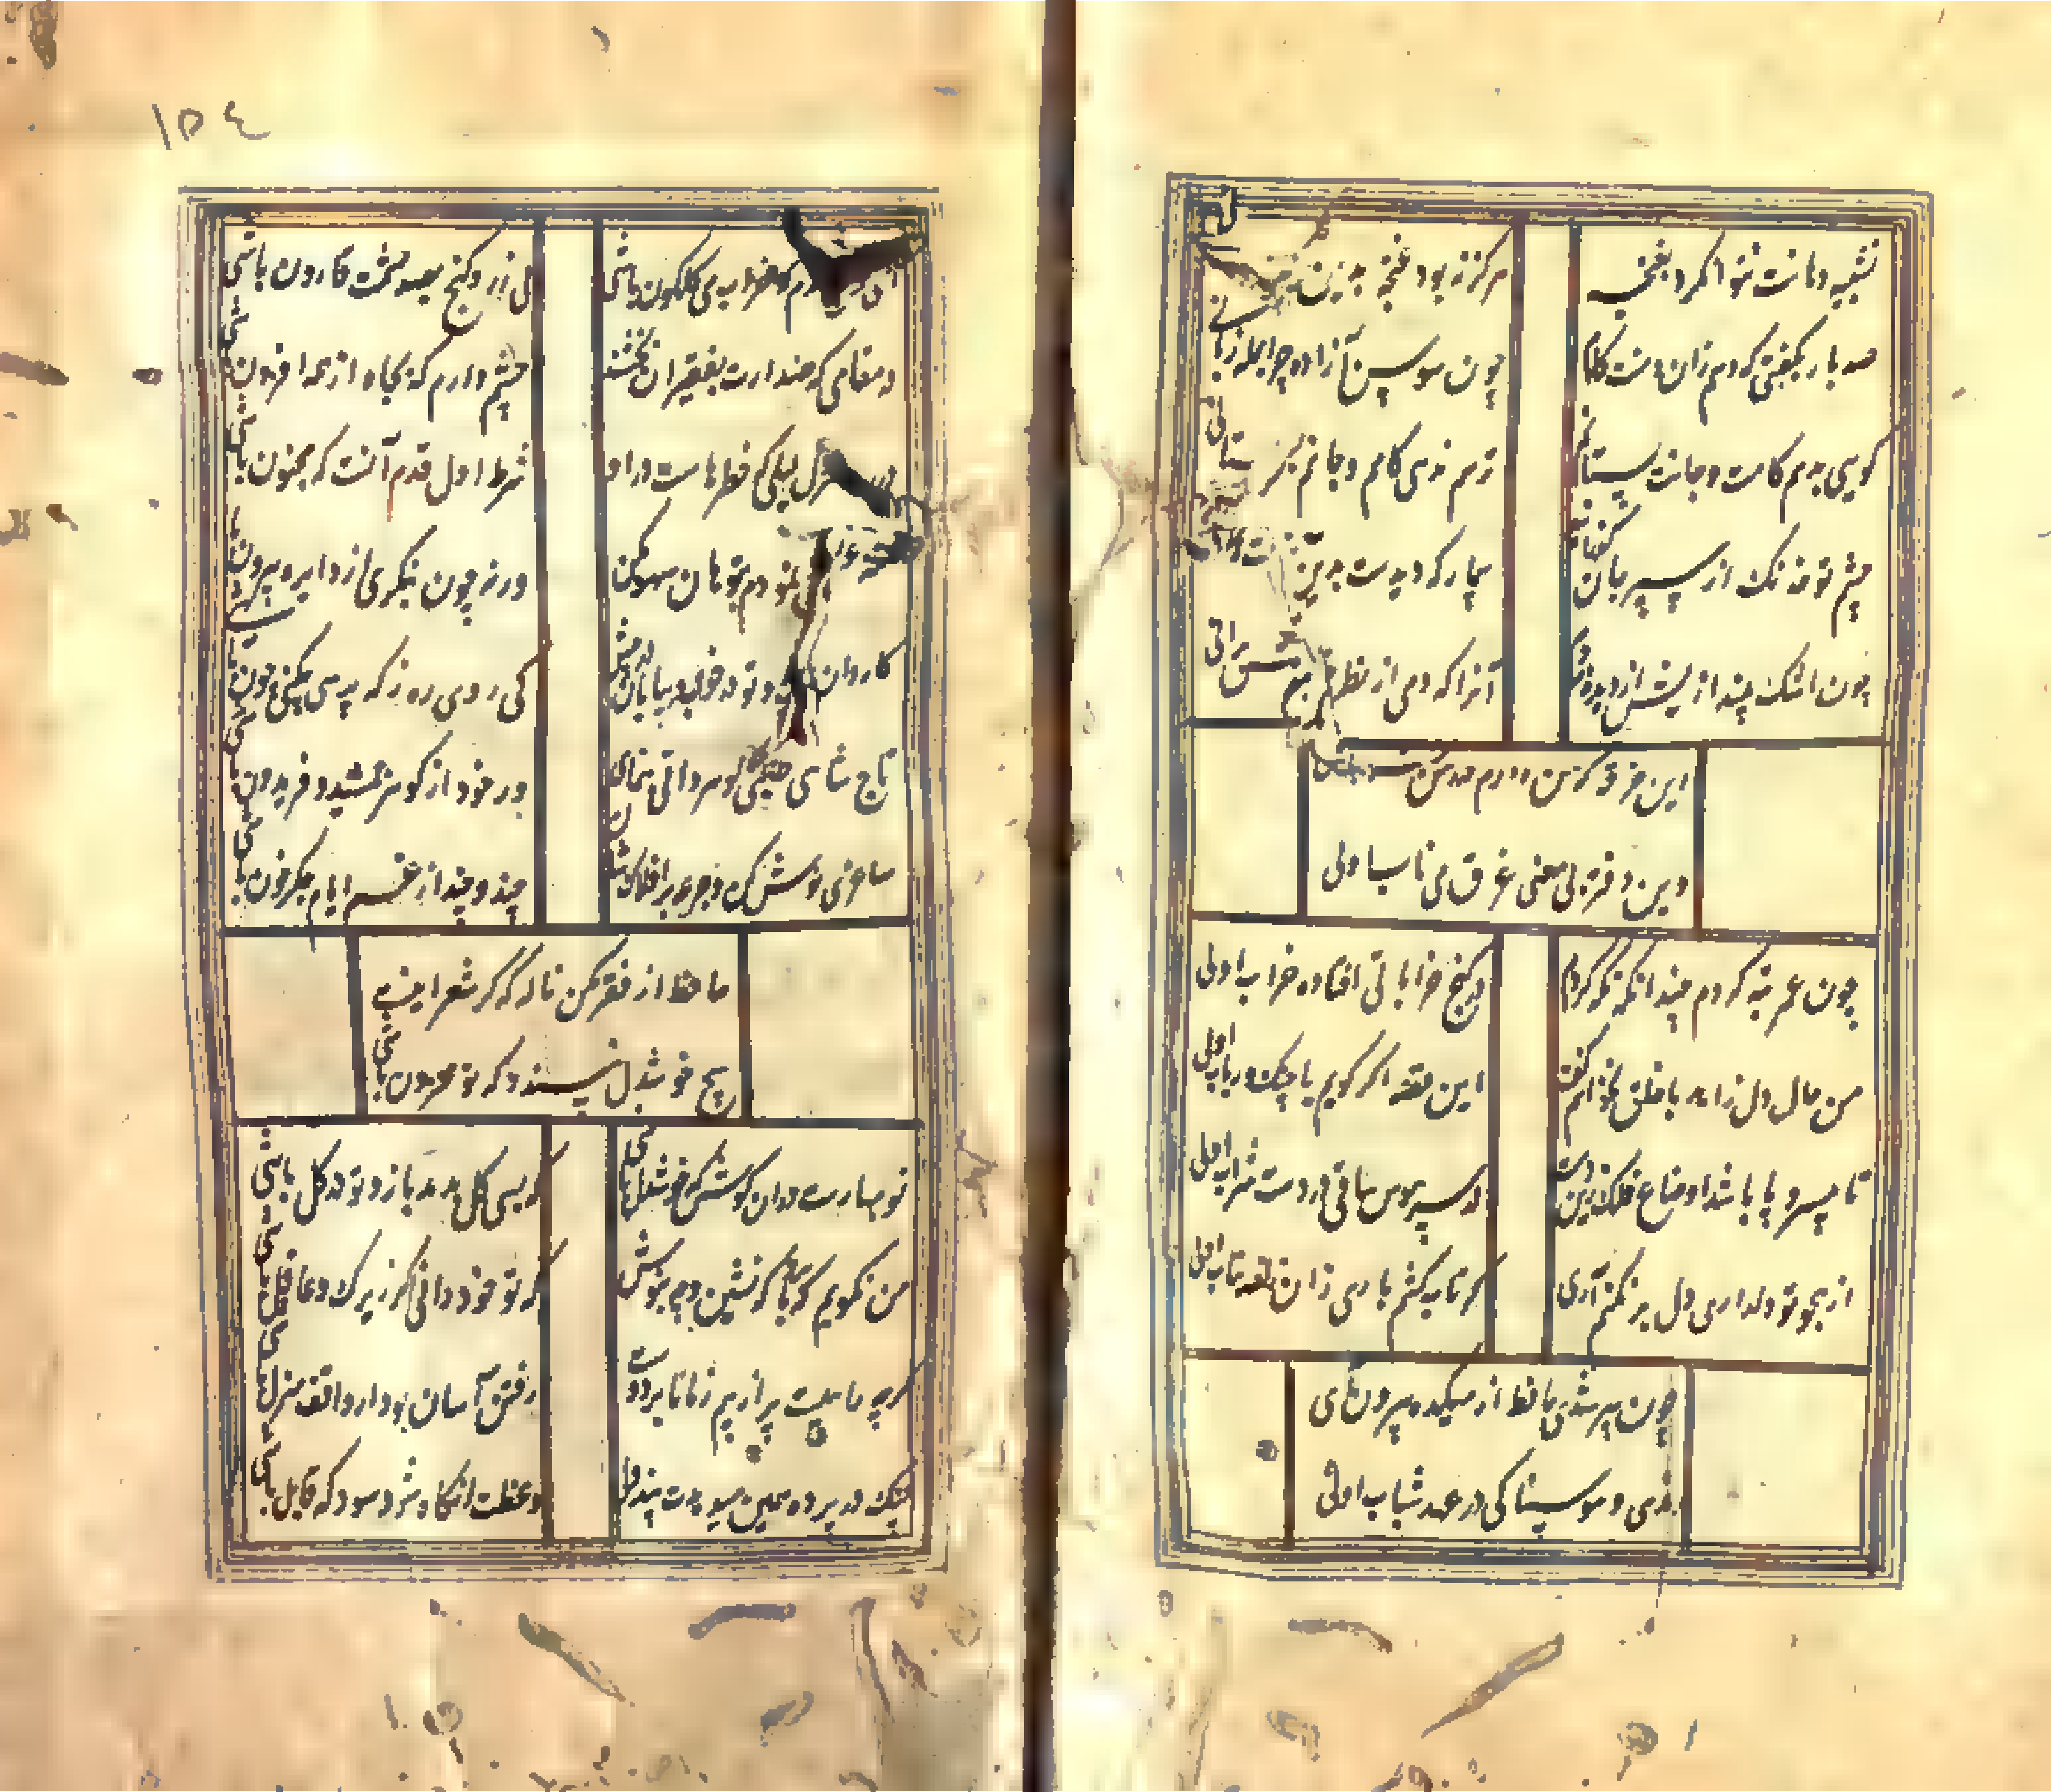 تشبیه دهانت نتوان کرد بغنچه
هرگز نبود غنچه بدین
صد بار بگفتی که دهم زان دهنت کام
چون سوسن آزاده چرا جمله زبانی
گویی بدهم کامت و جانت بستانم
ترسم ندهی کامم و جانم بستانی
چشم تو خدنک از سپر جان گذراند
بیمار که دیدست بدین
چون اشک بیندازیش از دیده مردم
آنرا که دمی از نظر خویش برانی
این خرقه که من دارم در رهن شراب
وین دفتر بی معنی غرق می ناب اولی
چون عمر تبه کردم چندانکه نگه کردم
در کنج خراباتی افتاده خراب اولی
من حال دل زاهد با خلق نخواهم گفت
این قصه اگر گویم با چنک و رباب اولی
تا بی سر و پا باشد اوضاع فلک زین دست
در سر هوس ساقی در دست شراب اولی
از همچو تو دلداری دل بر نکنم آری
گر تاب کشم باری زان زلف بتاب اولی
چون پیر شدی حافظ از میکده بیرون آی
رندی و هوسناکی در عهد شباب اولی
١٥٤
آن دم که خراب می گلگون باشی
بی زر و گنج بصد حشمت قارون باشی
در مقامی که صدارت بفقیران بخشند
چشم دارم که بجاه از همه افزون باشی
در ره منزل لیلی که خطرهاست در او
شرط اول قدم آنست که مجنون باشی
نقطه عشق نمودم بتو هان سهو مکن
ورنه چون بنگری از دایره بیرون باشی
کاروان رفت و تو در خواب و بیابان در پیش
کی روی ره ز که پرسی چکنی چون باشی
تاج شاهی طلبی گوهر ذاتی بنمای
در خود از گوهر جمشید و فریدون باشی
ساغری نوش کن و جرعه بر افلاک فشان
چند و چند از غم ایام جگر خون باشی
حافظ از فقر مکن ناله که گر شعر اینست
هیچ خوشدل نپسندد که تو محزون باشی
نو بهارست در آن کوش که خوشدل باشی
که بسی گل بدمد باز و تو در گل باشی
من نگویم که کنون با که نشین و چه بنوش
که تو خود دانی اگر زیرک و عاقل باشی
رفتن آسان بود ار واقف منزل باشی
چنک در پرده همین میدهدت پند ولی
وعظت آنگاه شود سود که قابل باشی